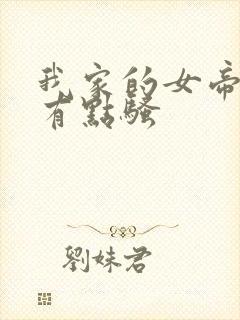 我家的女帝
有點騷
劉妹君